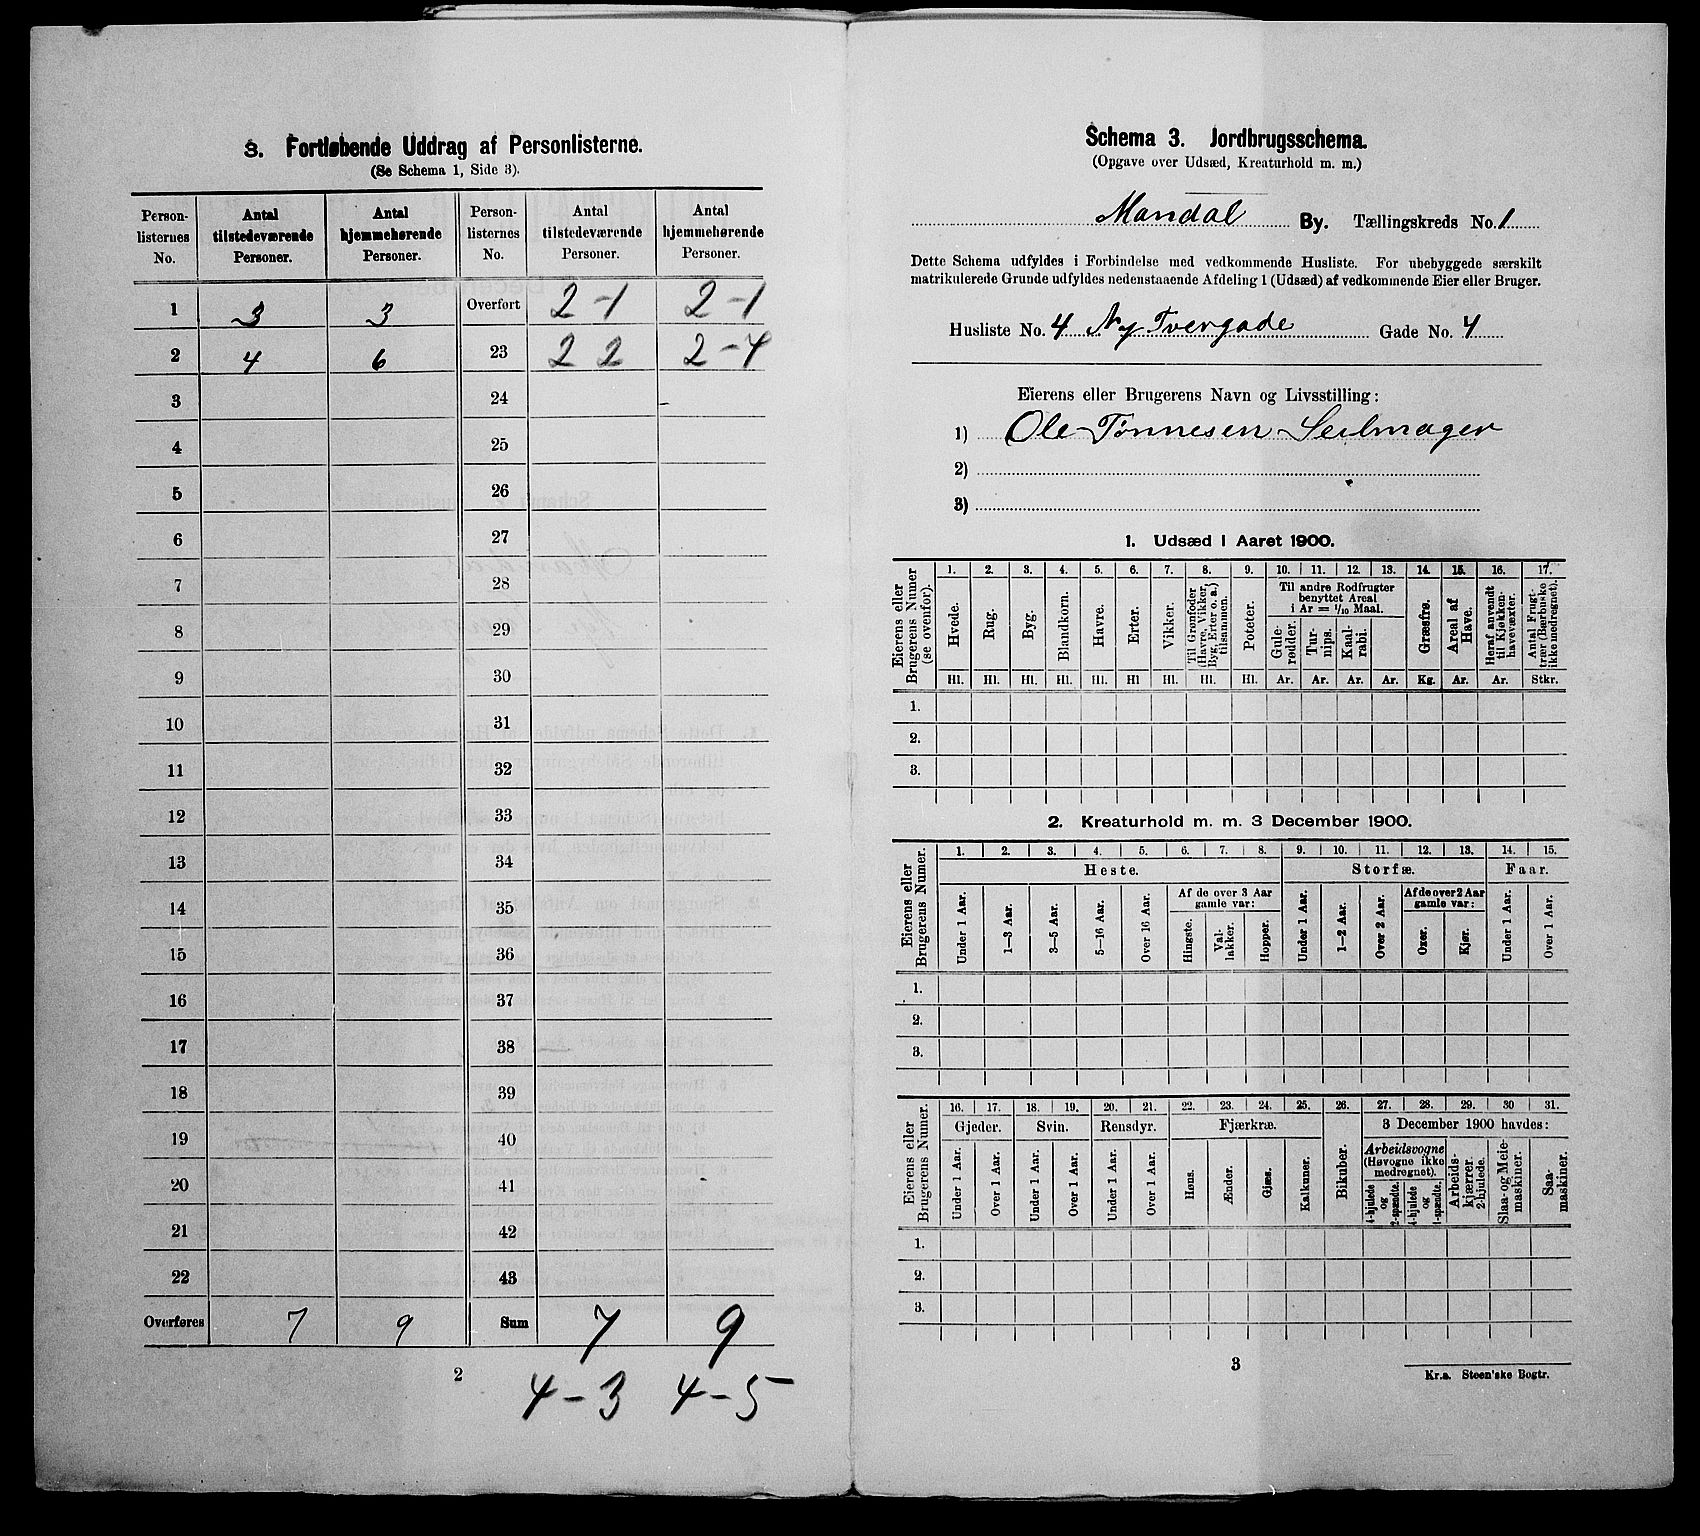 3. Fortløbende Uddrag af Personlisterne.
(Se Schema 1, Side 3).
Person-listernes No. | Antal tilstedeværende Personer. | Antal hjemmehørende Personer. | Person-listernes No. | Antal tilstedeværende Personer. | Antal hjemmehørende Personer.
1 3 3 Overført 2-1 2-1
2 4 6 23 2 2 2-4
3 24
4 25
5 26
6 27
7 28
8 29
9 30
10 31
11 32
12 33
13 34
14 35
15 36
16 37
17 38
18 39
19 40
20 41
21 42
22 43
Overføres 7 9 Sum 7 9
2
4-3 4-5
Schema 3. Jordbrugsschema.
(Opgave over Udsæd, Kreaturhold m. m.)
Mandal By. Tællingskreds No. 1
Dette Schema udfyldes i Forbindelse med vedkommende Husliste. For ubebyggede særskilt
matrikulerede Grunde udfyldes nedenstaaende Afdeling 1 (Udsæd) af vedkommende Eier eller Bruger.
Husliste No. 4 Ny Tvergade Gade No. 4
Eierens eller Brugerens Navn og Livsstilling:
1) Ole Tønnesen Seilmager
2)
3)
1. Udsæd i Aaret 1900.
Eierens eller Brugerens Numer (se ovenfor).
1. 2. 3. 4. 5. 6. 7. 8. 9. 10. 11. 12. 13. 14. 15. 16. 17.
Til andre Rodfrugter
benyttet Areal
i Ar = 1/10 Maal.
Hvede. Rug. Byg. Blandkorn. Havre. Erter. Vikker. Til Grønfoder (Havre, Vikker, Byg, Erter o. a.) tilsammen. Poteter. Gule-rødder. Tur-nips. Kaal-rabi. Græsfrø. Areal af Have. Heraf anvendt til Kjøkken-havevæxter. Antal Frugt-trær (Bærbuske ikke medregnet).
Hl. Hl. Hl. Hl. Hl. Hl Hl. Hl. Hl. Ar. Ar. Ar. Ar. Kg. Ar. Ar. Stkr.
1.
2.
3.
2. Kreaturhold m. m. 3 December 1900.
Eierens eller Brugerens Numer.
1. 2. 3. 4. 5. 6. 7. 8. 9. 10. 11. 12. 13. 14. 15.
Heste. Storfæ. Faar.
Af de over 3 Aar gamle var: Af de over 2 Aar gamle var:
Under 1 Aar. 1—3 Aar. 3—5 Aar. 5—16 Aar. Over 16 Aar. Hingste. Val-lakker. Hopper. Under 1 Aar. 1—2 Aar. Over 2 Aar. Oxer. Kjør. Under 1 Aar. Over 1 Aar.
1.
2.
3.
Eierens eller Brugerens Numer.
16. 17. 18. 19. 20. 21. 22. 23. 24. 25. 26. 27. 28. 29. 30 31.
Gjeder. Svin. Rensdyr. Fjærkræ. Bikuber. 3 December 1900 havdes:
Arbeidsvogne (Høvogne ikke medregnet).
Under 1 Aar. Over 1 Aar. Under 1 Aar. Over 1 Aar. Under 1 Aar. Over 1 Aar. Høns. Ænder. Gjæs. Kalkuner. 4-hjulede og 2-spændte. 4-hjulede og 1-spændte. Arbeids-kjærrer, 2-hjulede. Slaa- og Meie-maskiner. Saa-maskiner.
1.
2.
3.
3
Kr.a. Steen'ske Bogtr.